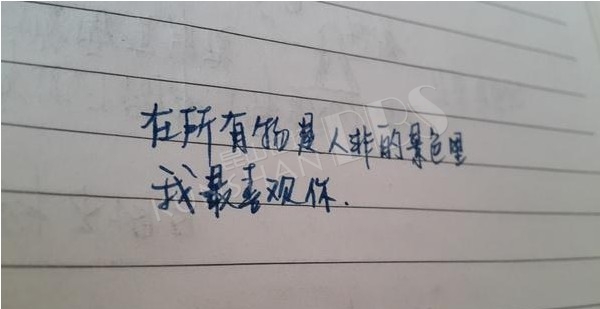 在所有物是人非的景色里
我最喜欢你.